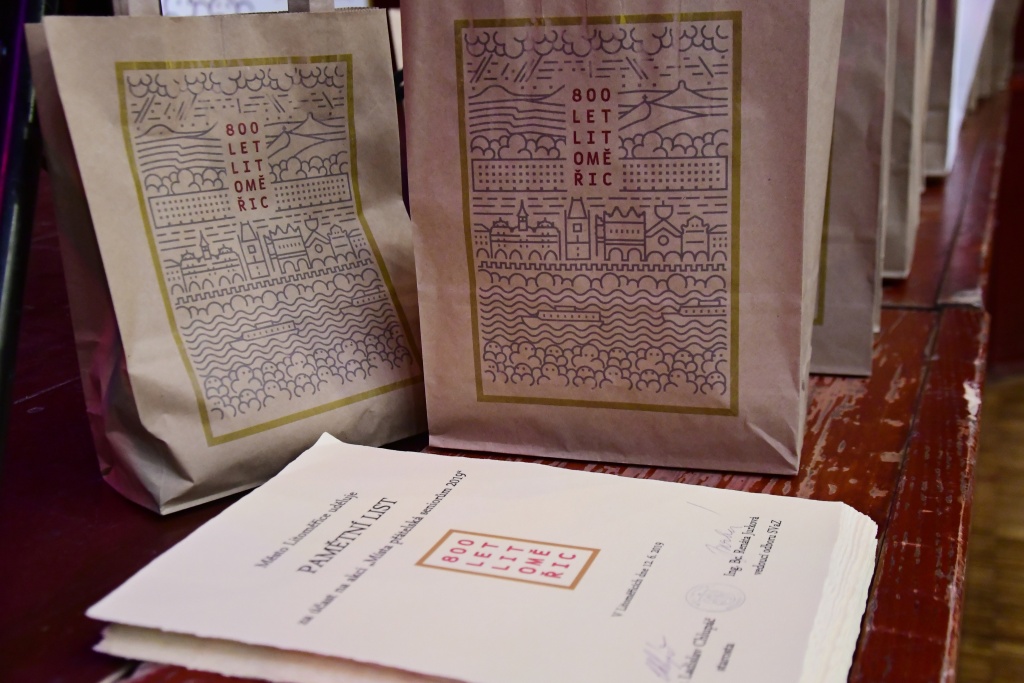 800
LET
LIT
OMĚ
ŘIC
800
LET
LIT
OMĚ
ŘIC
Město Litoměřice uděluje
PAMĚTNÍ LIST
za účast na akci „Města přátelská seniorům 2019“
800
LET
LIT
OMĚ
ŘIC
V Litoměřicích dne 12. 6. 2019
Ladislav Chlupáč
starosta
Ing. Bc. Renáta Jurková
vedoucí odboru SVaZ